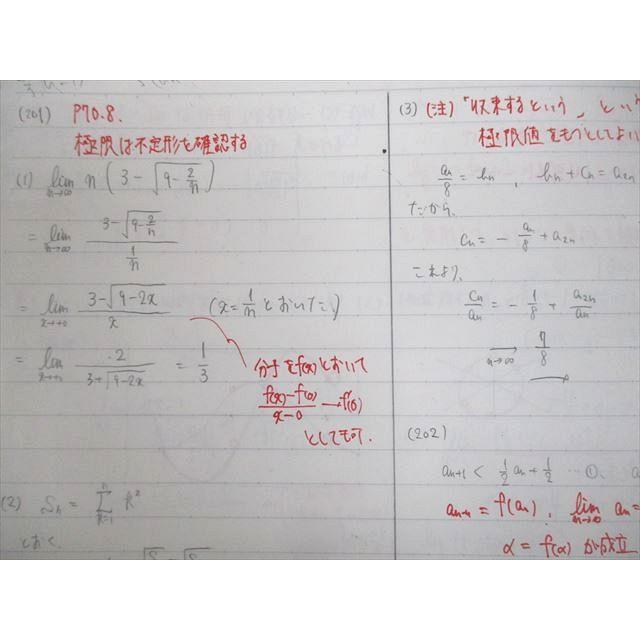 (201) P70.8.
極限は不定形を確認する
(1) lim n→∞ n(3-√(9-2/n))
= lim n→∞ (3-√(9-2/n))/(1/n)
= lim x→+0 (3-√(9-2x))/x (x=1/nとおいた)
= lim x→+0 2/(3+√(9-2x)) = 1/3
分子をf(x)とおいて
(f(x)-f(0))/(x-0) → f'(0)
としても可.
(2) Sn = Σ k=1 n k²
とおく
(3) (注) 「収束するという」という
極限値をもつとしてよい
an/8 = bn, bn+cn=a2n
だから,
cn = - an/8 + a2n
これより,
cn/an = - 1/8 + a2n/an
→ n→∞ 7/8
(202)
an+1 < 1/2 an + 1/2 … ①,
an+1 = f(an), lim n→∞ an =
α = f(α) が成立